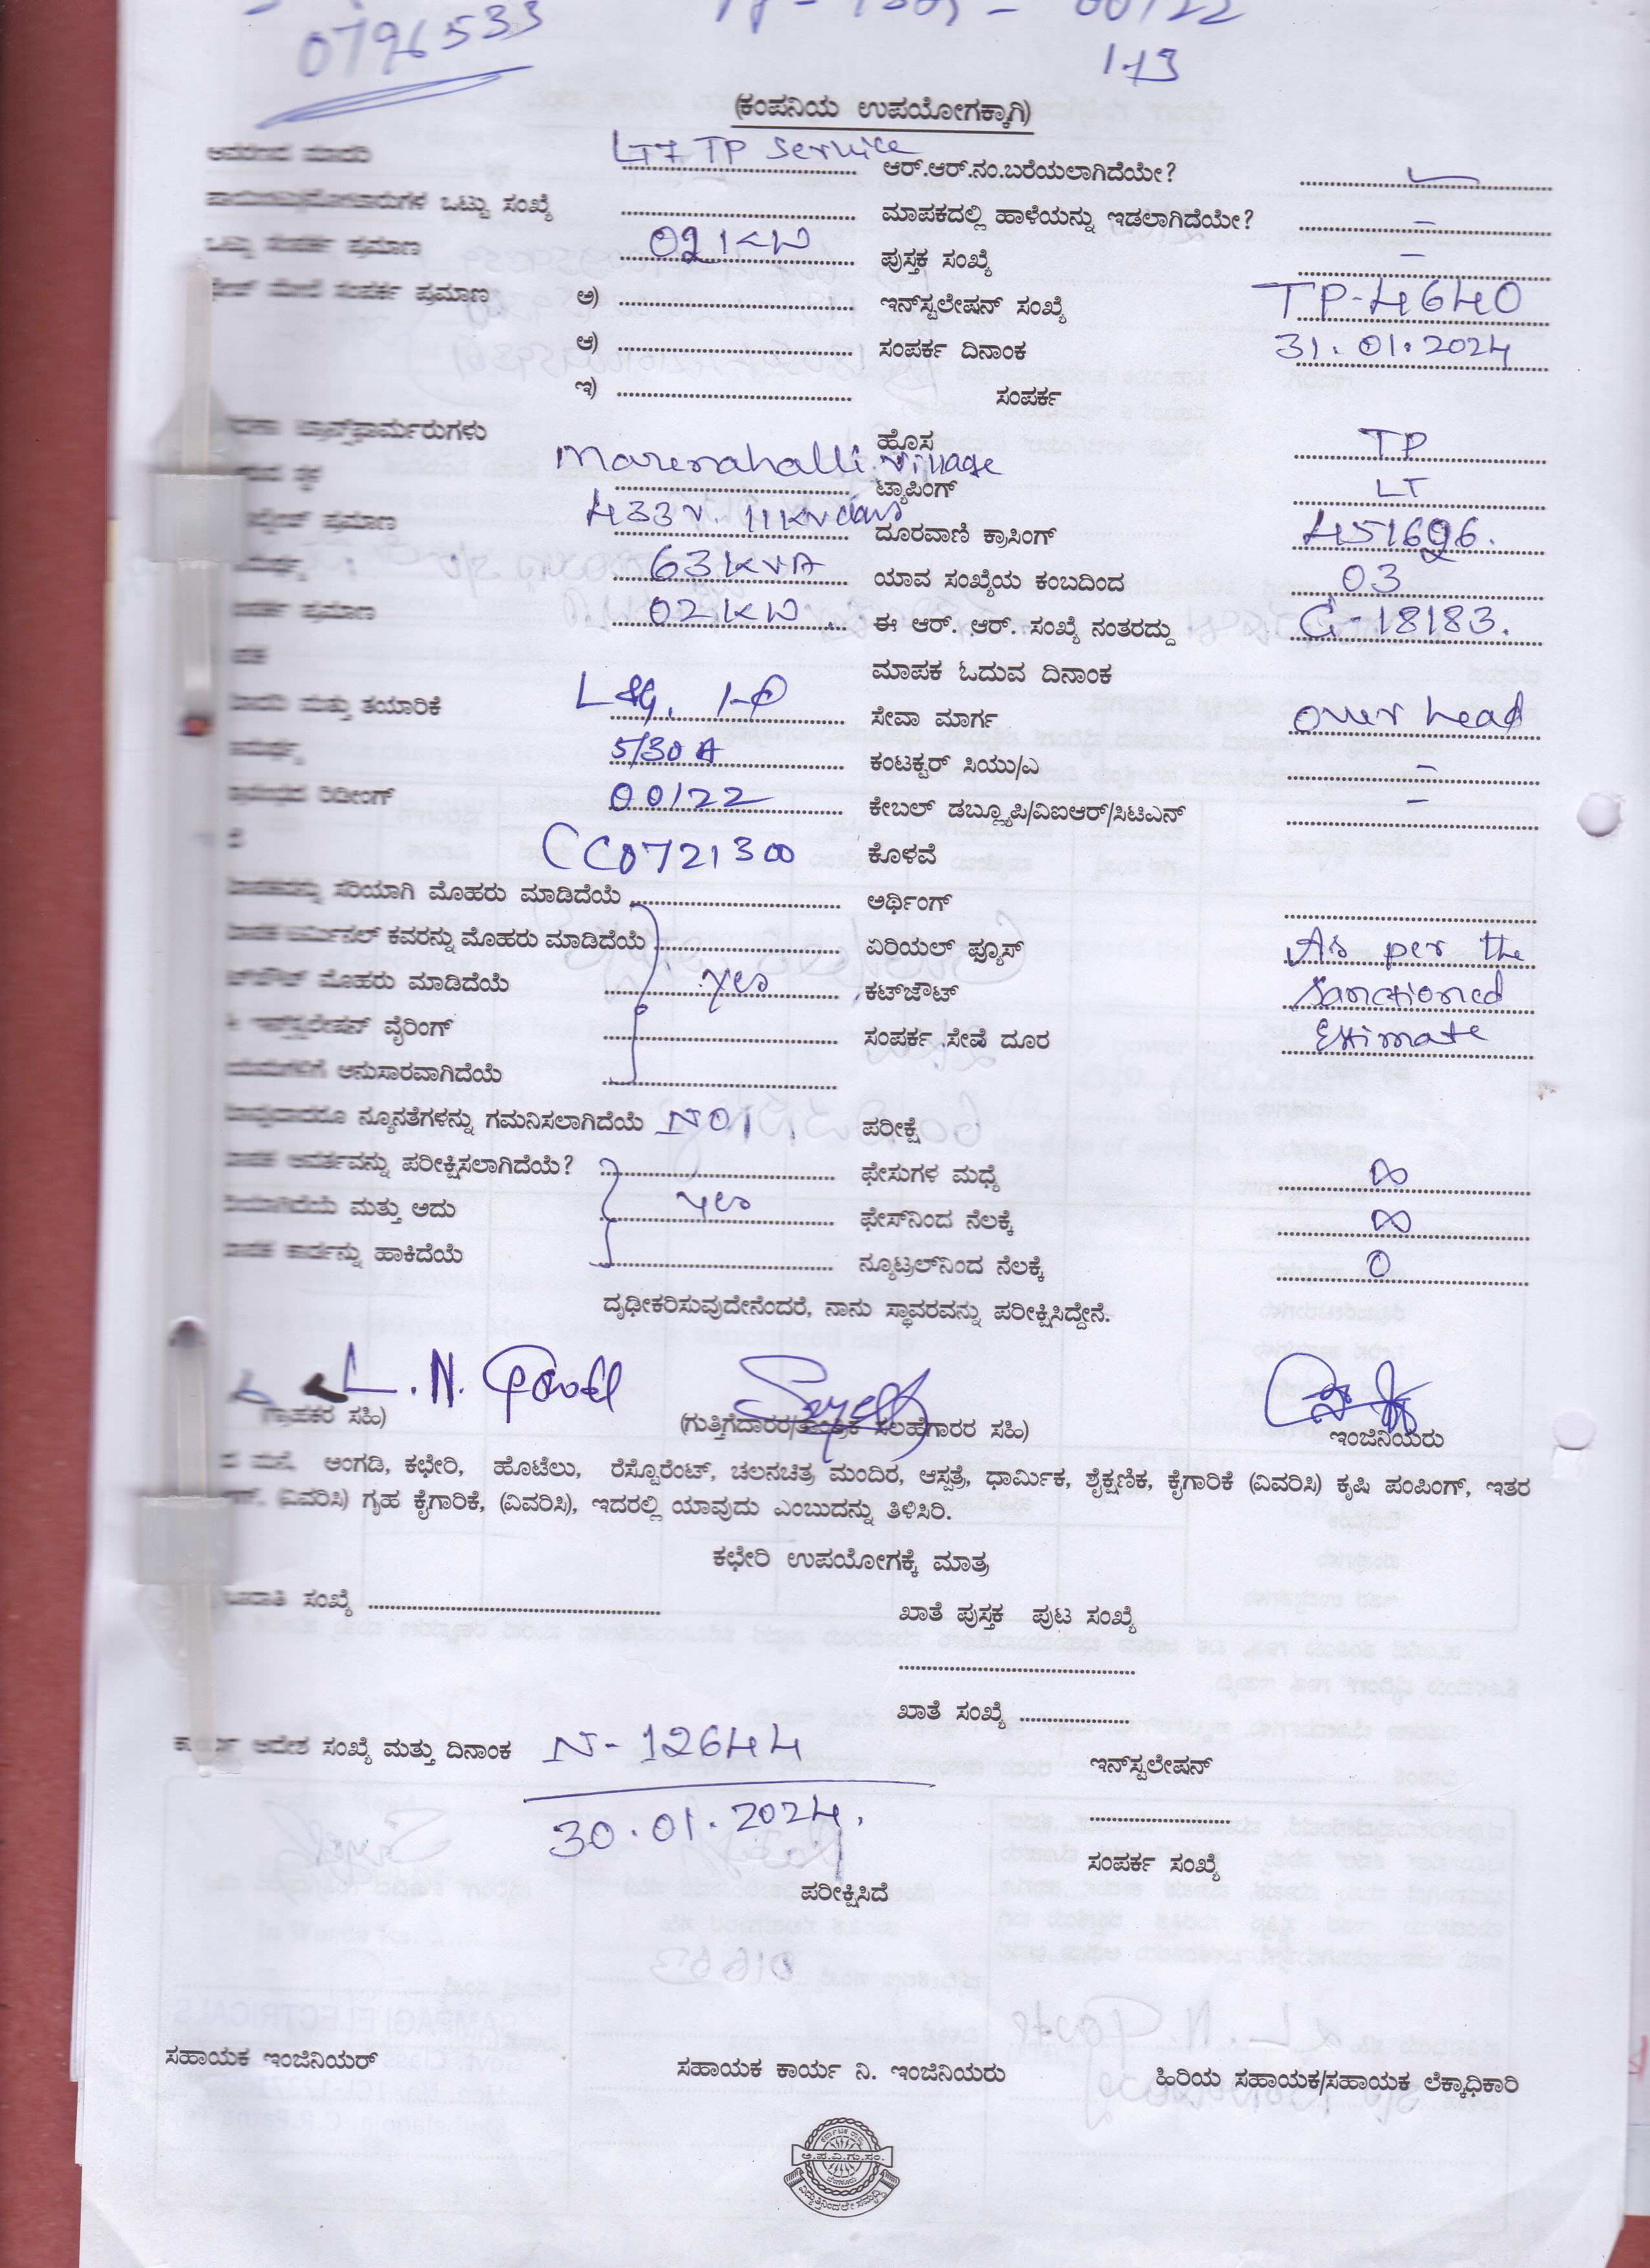 0796533
00/22
1-J3
(ಕಂಪನಿಯ ಉಪಯೋಗಕ್ಕಾಗಿ)
LT7 TP Service ಆರ್.ಆರ್.ನಂ.ಬರೆಯಲಾಗಿದೆಯೇ?
ಒಟ್ಟು ಸಂಖ್ಯೆ ಮಾಪಕದಲ್ಲಿ ಹಾಳೆಯನ್ನು ಇಡಲಾಗಿದೆಯೇ? –
ಒಟ್ಟು ಸಂಪರ್ಕ ಪ್ರಮಾಣ 02 KW ಪುಸ್ತಕ ಸಂಖ್ಯೆ –
ಮೇಲೆ ಸಂಪರ್ಕ ಪ್ರಮಾಣ ಅ) ಇನ್‌ಸ್ಟಲೇಷನ್ ಸಂಖ್ಯೆ TP-4640
ಆ) ಸಂಪರ್ಕ ದಿನಾಂಕ 31.01.2024
ಇ) ಸಂಪರ್ಕ
ಟ್ರಾನ್ಸ್‌ಫಾರ್ಮರುಗಳು ಹೊಸ TP
Marenahalli Village ಟ್ಯಾಪಿಂಗ್ LT
ಪ್ರಮಾಣ 433v. 11KV ದೂರವಾಣಿ ಕ್ರಾಸಿಂಗ್ 451696.
63 KVA ಯಾವ ಸಂಖ್ಯೆಯ ಕಂಬದಿಂದ 03
ಪ್ರಮಾಣ 02 KW. ಈ ಆರ್. ಆರ್. ಸಂಖ್ಯೆ ನಂತರದ್ದು G-18183.
ಮಾಪಕ ಓದುವ ದಿನಾಂಕ
ಮತ್ತು ತಯಾರಿಕೆ L&G, 1-Φ ಸೇವಾ ಮಾರ್ಗ over head
5/30 A ಕಂಟಕ್ಟರ್ ಸಿಯು/ಎ –
ರಿಡೀಂಗ್ 00/22 ಕೇಬಲ್ ಡಬ್ಲ್ಯೂಪಿ/ವಿಐಆರ್/ಸಿಟಿಎನ್ –
CC0721300 ಕೊಳವೆ
ಸರಿಯಾಗಿ ಮೊಹರು ಮಾಡಿದೆಯೆ ಅರ್ಥಿಂಗ್
ಕವರನ್ನು ಮೊಹರು ಮಾಡಿದೆಯೆ ಏರಿಯಲ್ ಫ್ಯೂಸ್ As per the
ಮೊಹರು ಮಾಡಿದೆಯೆ yes ಕಟ್‌ಔಟ್ Sanctioned
ವೈರಿಂಗ್ ಸಂಪರ್ಕ ಸೇವೆ ದೂರ Estimate
ಅನುಸಾರವಾಗಿದೆಯೆ
ನ್ಯೂನತೆಗಳನ್ನು ಗಮನಿಸಲಾಗಿದೆಯೆ NO ಪರೀಕ್ಷೆ
ಪರೀಕ್ಷಿಸಲಾಗಿದೆಯೆ? ಫೇಸುಗಳ ಮಧ್ಯೆ ∞
ಮತ್ತು ಅದು yes ಫೇಸ್‌ನಿಂದ ನೆಲಕ್ಕೆ ∞
ಕಾರ್ಡನ್ನು ಹಾಕಿದೆಯೆ ನ್ಯೂಟ್ರಲ್‌ನಿಂದ ನೆಲಕ್ಕೆ 0
ದೃಢೀಕರಿಸುವುದೇನೆಂದರೆ, ನಾನು ಸ್ಥಾವರವನ್ನು ಪರೀಕ್ಷಿಸಿದ್ದೇನೆ.
L. N. Gowda
ಗ್ರಾಹಕರ ಸಹಿ) (ಗುತ್ತಿಗೆದಾರರ/ತಾಂತ್ರಿಕ ಸಲಹೆಗಾರರ ಸಹಿ) ಇಂಜಿನಿಯರು
ಮನೆ, ಅಂಗಡಿ, ಕಛೇರಿ, ಹೊಟೆಲು, ರೆಸ್ಟೊರೆಂಟ್, ಚಲನಚಿತ್ರ ಮಂದಿರ, ಆಸ್ಪತ್ರೆ, ಧಾರ್ಮಿಕ, ಶೈಕ್ಷಣಿಕ, ಕೈಗಾರಿಕೆ (ವಿವರಿಸಿ) ಕೃಷಿ ಪಂಪಿಂಗ್, ಇತರ
(ವಿವರಿಸಿ) ಗೃಹ ಕೈಗಾರಿಕೆ, (ವಿವರಿಸಿ), ಇದರಲ್ಲಿ ಯಾವುದು ಎಂಬುದನ್ನು ತಿಳಿಸಿರಿ.
ಕಛೇರಿ ಉಪಯೋಗಕ್ಕೆ ಮಾತ್ರ
ಸಂಖ್ಯೆ ಖಾತೆ ಪುಸ್ತಕ ಪುಟ ಸಂಖ್ಯೆ
ಖಾತೆ ಸಂಖ್ಯೆ
ಆದೇಶ ಸಂಖ್ಯೆ ಮತ್ತು ದಿನಾಂಕ N-12644 ಇನ್‌ಸ್ಟಲೇಷನ್
30.01.2024.
ಸಂಪರ್ಕ ಸಂಖ್ಯೆ
ಪರೀಕ್ಷಿಸಿದೆ
ಸಹಾಯಕ ಇಂಜಿನಿಯರ್ ಸಹಾಯಕ ಕಾರ್ಯ ನಿ. ಇಂಜಿನಿಯರು ಹಿರಿಯ ಸಹಾಯಕ/ಸಹಾಯಕ ಲೆಕ್ಕಾಧಿಕಾರಿ